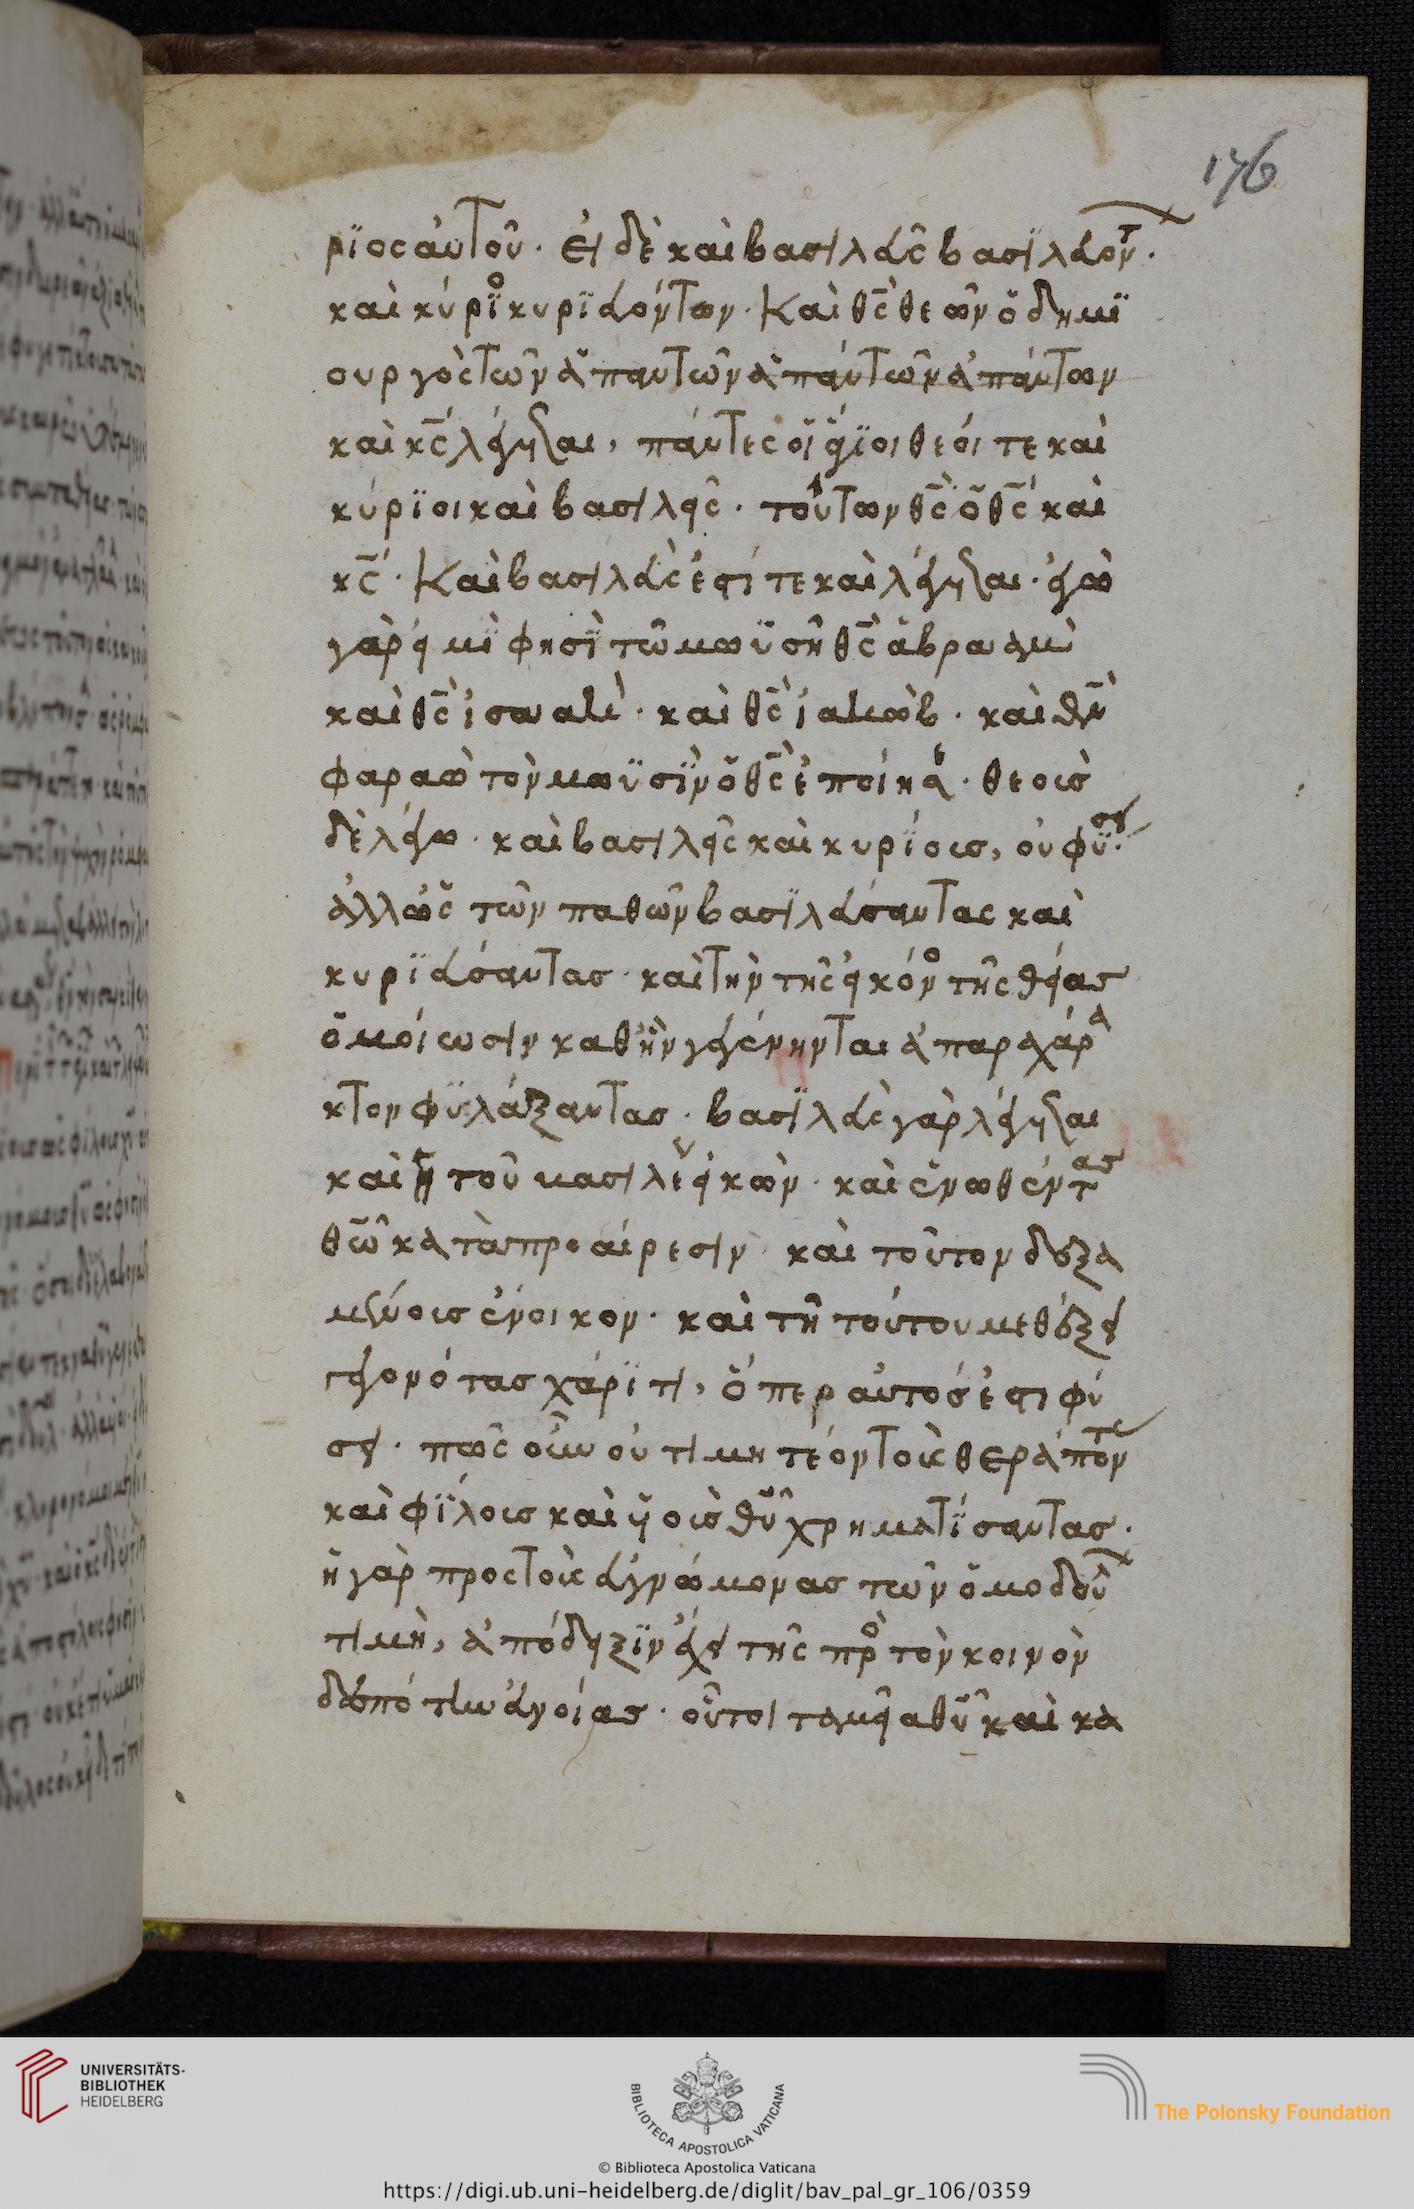 176
ρϊος αὐτοῦ · εἰ δὲ καὶ βασιλεὺς βασϊλευόντ ·
καὶ κύρϊο κυρϊευόντων · Καὶ θς θεῶν ὁ δημϊ
ουργὸς τῶν ἁπαντῶν ἁπάντῶν ἁπάντων
καὶ κς λέγεται, πάντες οἱ ἅγϊοι θεοί τε καὶ
κύρϊοι καὶ βασιλεῖς · τούτων θς ὁ θς καὶ
κς · Καὶ βασιλεὺς ἐστί τε καὶ λέγεται · ἐγὼ
γὰρ εἰμϊ φησϊ τῶ μωϋσῆ θς ἁβρααμ
καὶ θς ἰσαακ · καὶ θς ἰακωβ · καὶ θν
φαραὼ τὸν μωϋσϊν ὁ θς ἐποίησε · θεοὺς
δὲ λέγω · καὶ βασιλεῖς καὶ κυρϊους, οὐ φϋσει ·
ἀλλ ὡς τῶν παθῶν βασιλεύσαντας καὶ
κυρϊεύσαντας · καὶ τὴν τῆς εἰκόνο τῆς θείας
ὁμοίωσιν καθ ἣν γεγένηνται ἀπαραχάρα
κτον φϋλάξαντας · βασϊλεὺς γὰρ λέγεται
καὶ ἡ τοῦ βασιλέ εἰκὼν · καὶ ἑνωθέντας
θῶ κατὰ προαίρεσιν · καὶ τοῦτον δεξα
μένους ἔνοικον · καὶ τῆ τούτου μεθέξει
γεγονότας χάρϊτι, ὅπερ αὐτός ἐστι φύ
σει · πῶς οὖν οὐ τιμητέον τοὺς θεράποντ
καὶ φϊλους καὶ υἱοὺς θῦ χρηματϊσαντας ·
ἡ γὰρ πρὸς τοὺς εὐγνώμονας τῶν ὁμοδούλ
τιμὴ, ἀπόδειξϊν ἔχει τῆς πρὸ τὸν κοινὸν
δεσπότην εὐνοίας · οὗτοι ταμεῖα θῦ καὶ κα
UNIVERSITÄTS-
BIBLIOTHEK
HEIDELBERG
BIBLIOTECA APOSTOLICA VATICANA
The Polonsky Foundation
© Biblioteca Apostolica Vaticana
https://digi.ub.uni-heidelberg.de/diglit/bav_pal_gr_106/0359